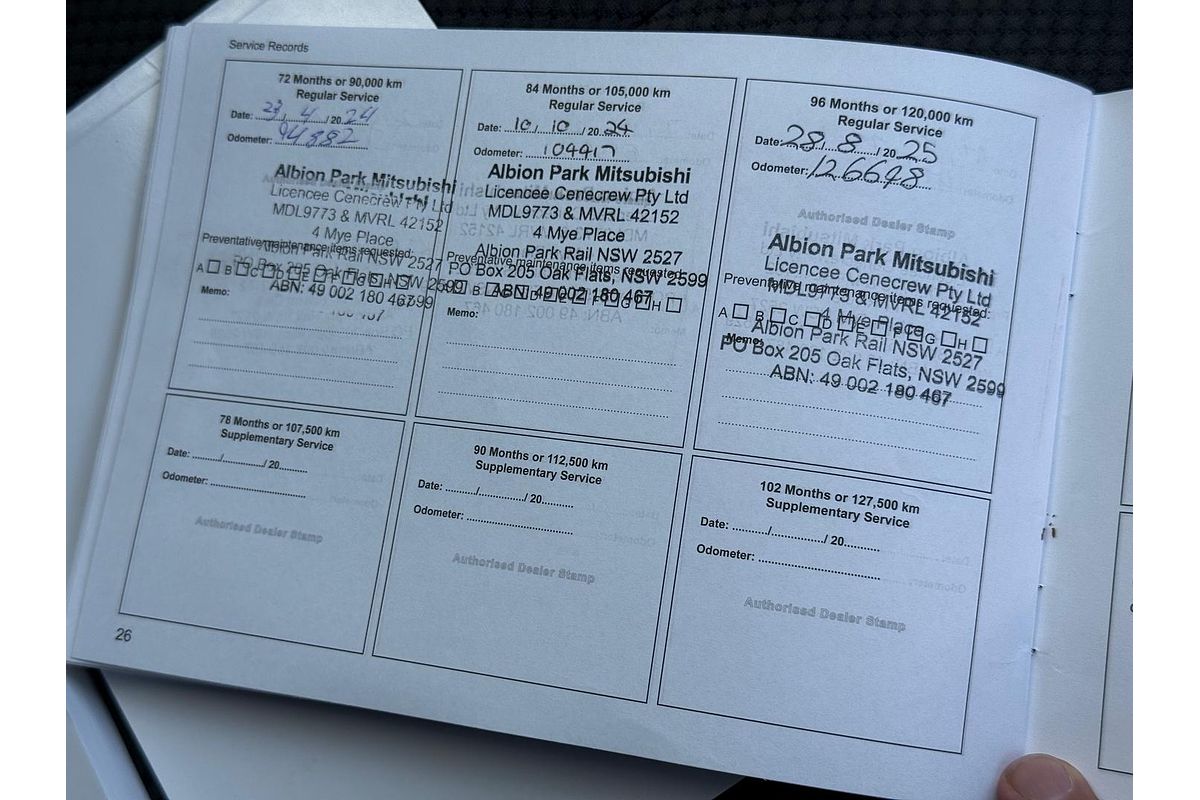 Service Records
72 Months or 90,000 km
Regular Service
Date: 23 / 4 / 20 24
Odometer: 94882
Albion Park Mitsubishi
Licencee Cenecrew Pty Ltd
MDL9773 & MVRL 42152
4 Mye Place
Preventative maintenance items requested:
Albion Park Rail NSW 2527
PO Box 205 Oak Flats, NSW 2599
A B C D E F G H
ABN: 49 002 180 467
Memo:
84 Months or 105,000 km
Regular Service
Date: 10 / 10 / 20 24
Odometer: 104417
Albion Park Mitsubishi
Licencee Cenecrew Pty Ltd
MDL9773 & MVRL 42152
4 Mye Place
Albion Park Rail NSW 2527
Preventative maintenance items requested:
PO Box 205 Oak Flats, NSW 2599
A B C D E F G H
ABN: 49 002 180 467
Memo:
96 Months or 120,000 km
Regular Service
Date: 28 / 8 / 20 25
Odometer: 126648
Authorised Dealer Stamp
Albion Park Mitsubishi
Licencee Cenecrew Pty Ltd
Preventative maintenance items requested:
MDL9773 & MVRL 42152
4 Mye Place
A B C D E F G H
Albion Park Rail NSW 2527
Memo:
PO Box 205 Oak Flats, NSW 2599
ABN: 49 002 180 467
78 Months or 107,500 km
Supplementary Service
Date: ........../............../ 20.........
Odometer: ..............................
Authorised Dealer Stamp
90 Months or 112,500 km
Supplementary Service
Date: ........../............../ 20.........
Odometer: ..............................
Authorised Dealer Stamp
102 Months or 127,500 km
Supplementary Service
Date: ........../............../ 20.........
Odometer: ..............................
Authorised Dealer Stamp
26